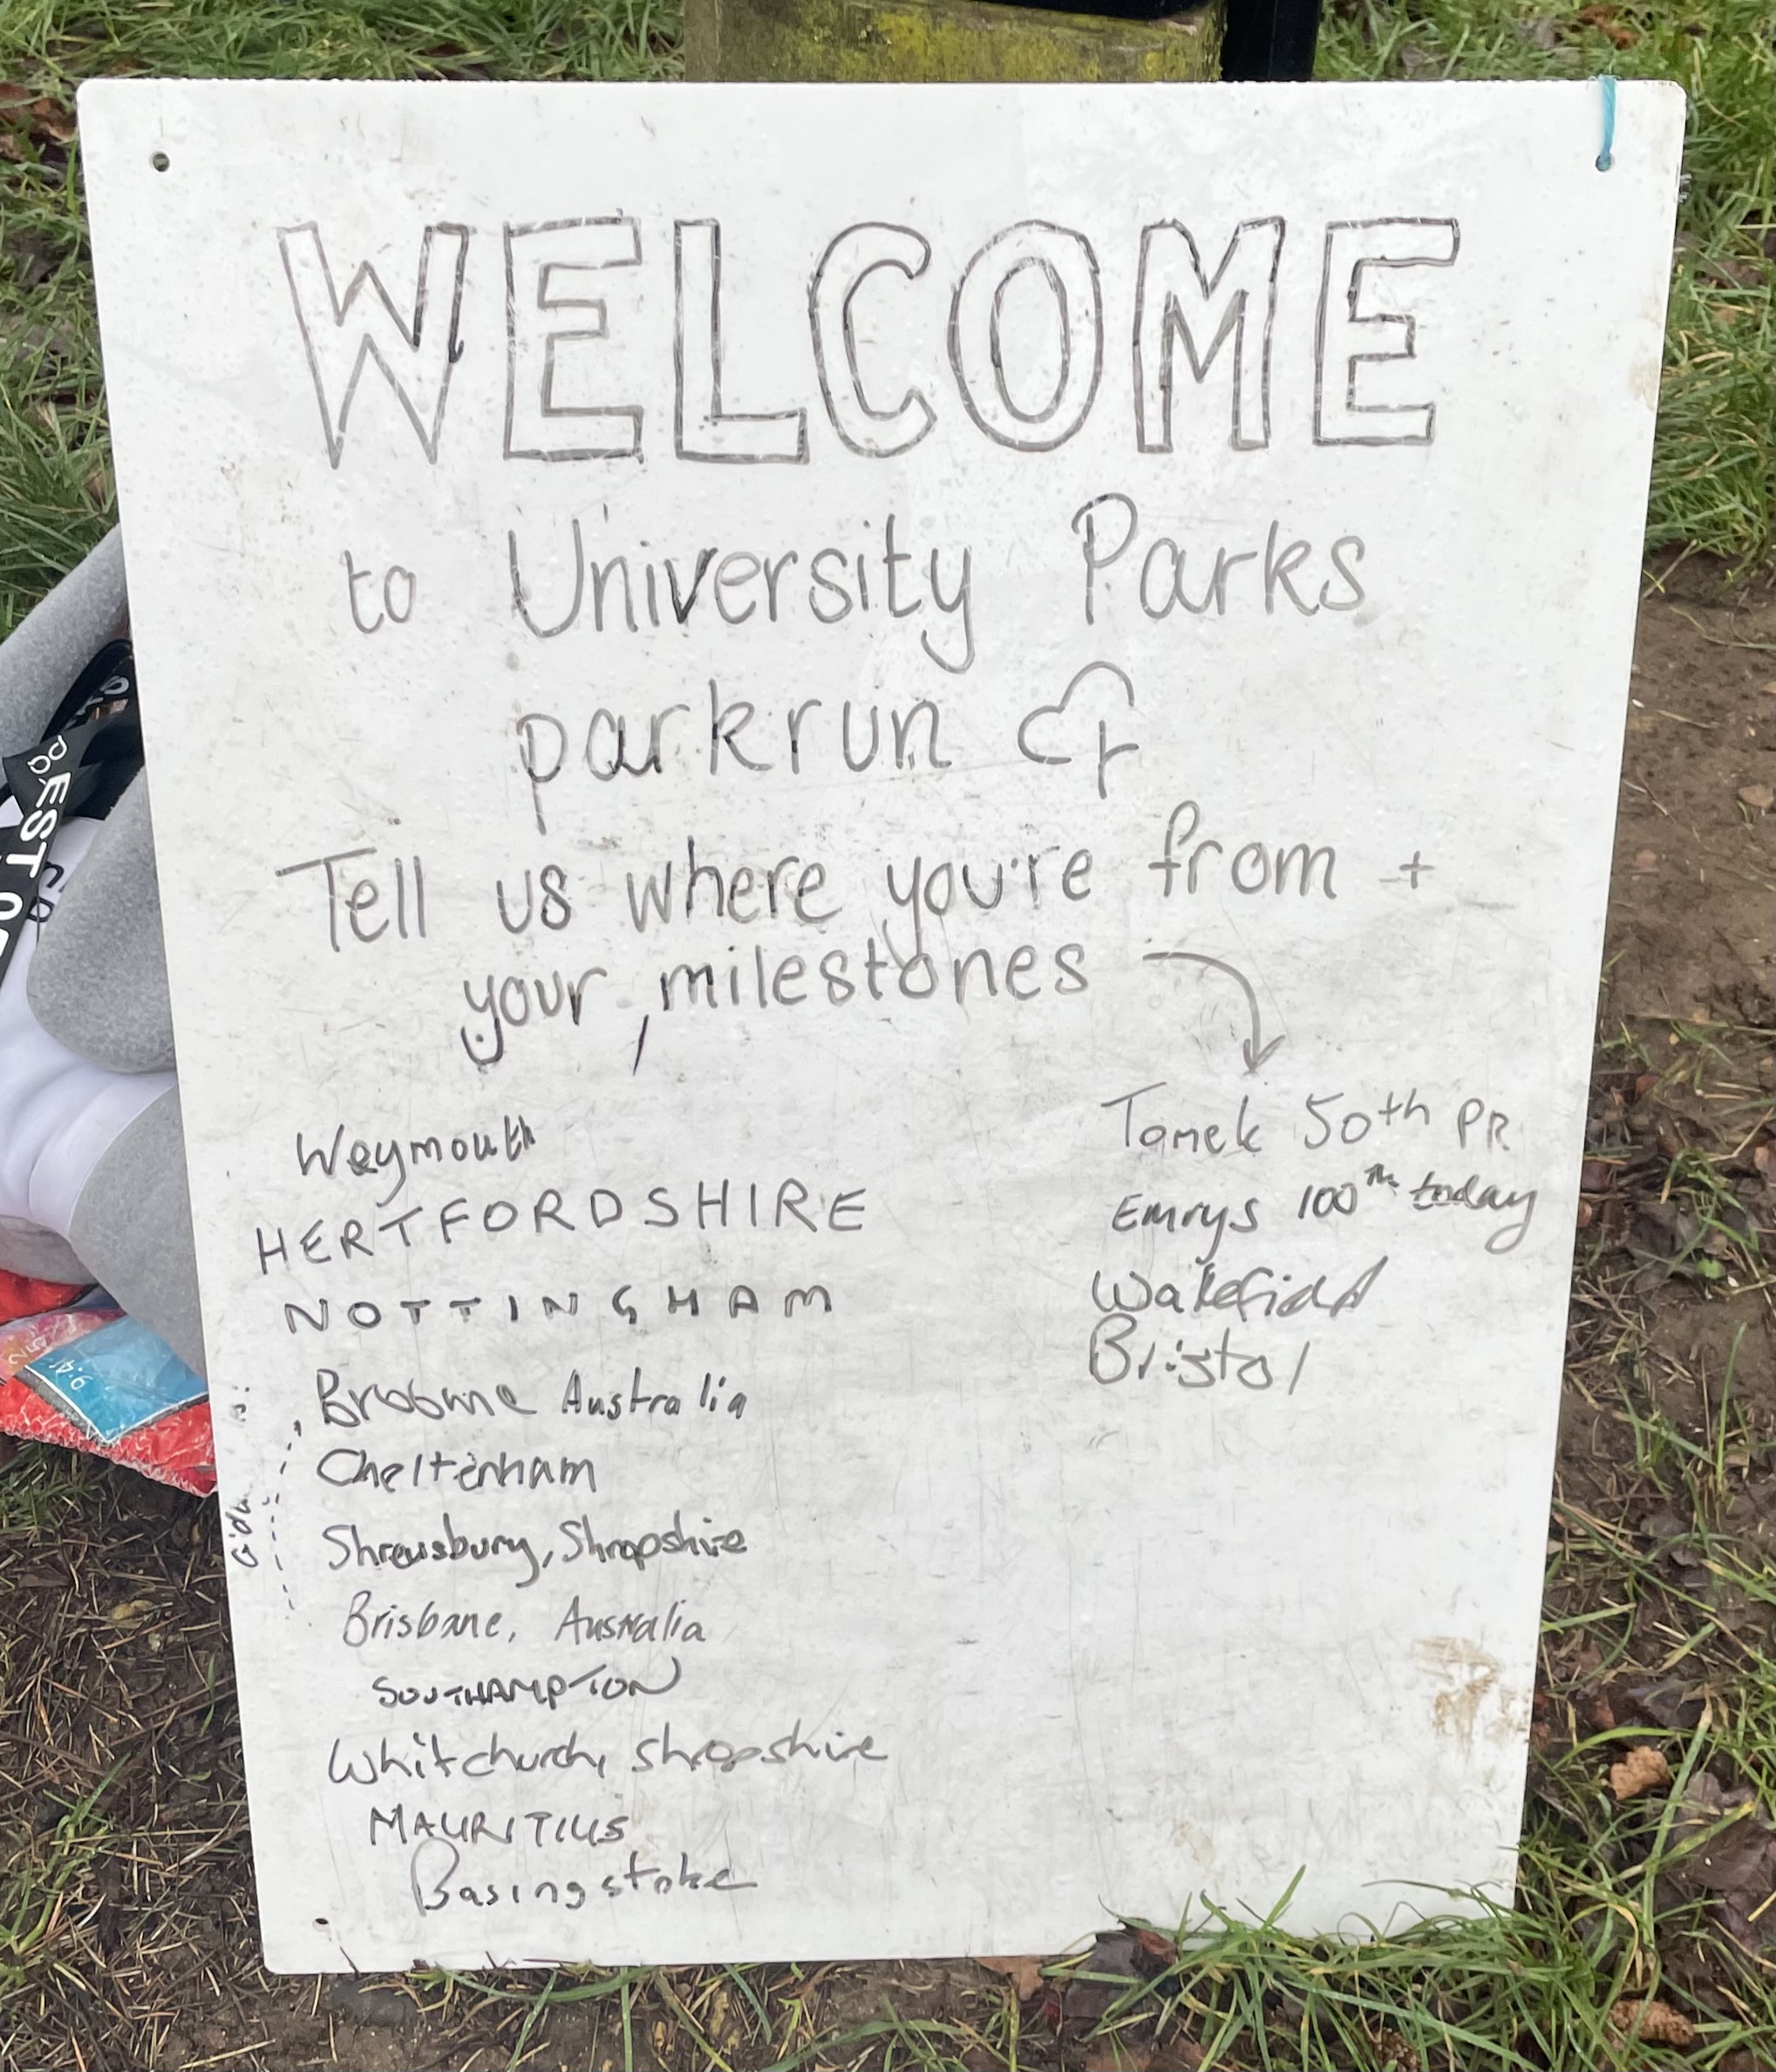 WELCOME
to University Parks
parkrun
Tell us where you're from +
your milestones
Weymouth
HERTFORDSHIRE
NOTTINGHAM
Australia
Cheltenham
Shrewsbury, Shropshire
Brisbane, Australia
SOUTHAMPTON
Whitchurch, Shropshire
MAURITIUS
Basingstoke
Tomek 50th PR
Emrys 100th today
Wakefield
Bristol
EST